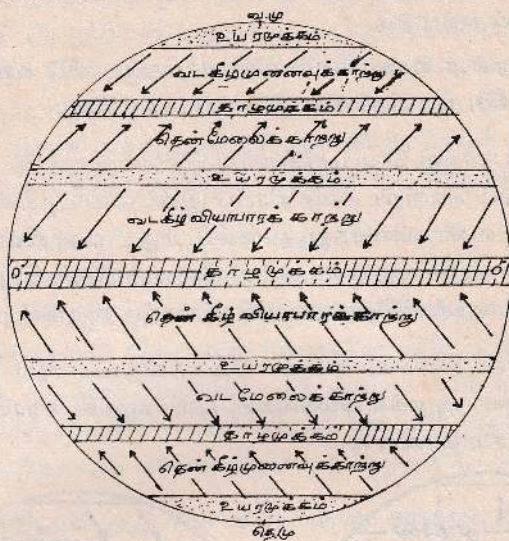 வ.மு
உயரமுக்கம்
வட கீழ்முனைவுக்காற்று
தாழமுக்கம்
தென்மேலைக்காற்று
உயரமுக்கம்
வடகீழ் வியாபாரக் காற்று
0° தாழமுக்கம் 0°
தென் கீழ் வியாபாரக்காற்று
உயரமுக்கம்
வட மேலைக்காற்று
தாழமுக்கம்
தென் கீழ்முனைவுக்காற்று
உயரமுக்கம்
தெ.மு